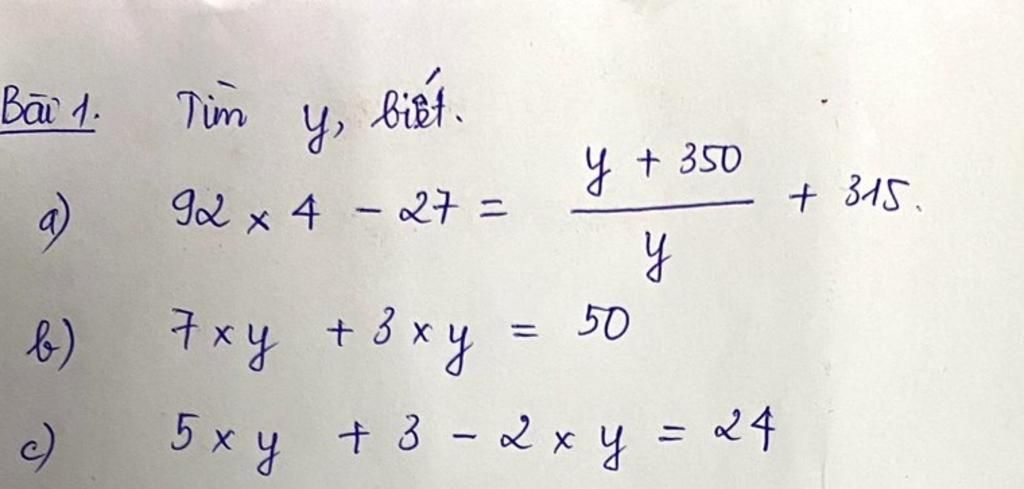 Bài 1. Tìm y, biết.
a) 92 x 4 - 27 = \frac{y + 350}{y} + 315.
b) 7 x y + 3 x y = 50
c) 5 x y + 3 - 2 x y = 24